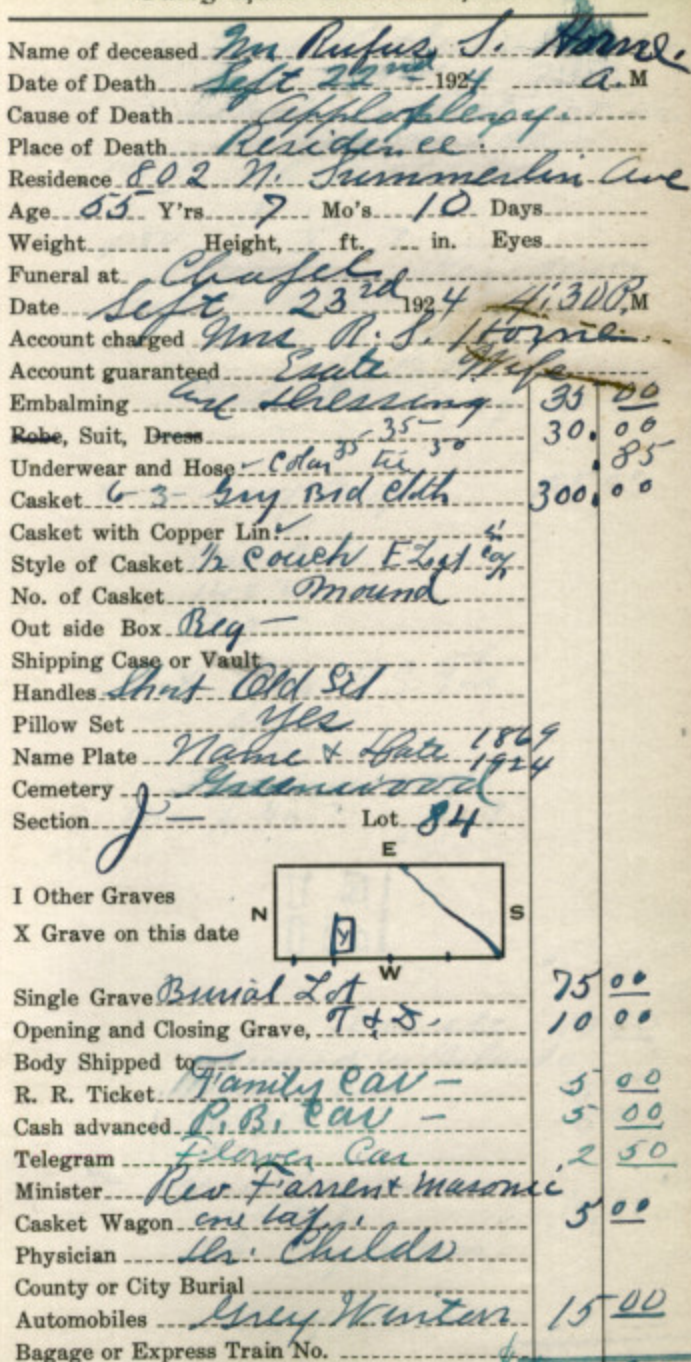 Name of deceased Mr Rufus S. Horne.
Date of Death Sept 22nd 1924 a. M
Cause of Death Applaplexy.
Place of Death Residence.
Residence 802 N. Summerlin Ave
Age 55 Y'rs 7 Mo's 10 Days
Weight Height, ft. in. Eyes
Funeral at Chapel
Date Sept 23rd 1924 4:30 P. M
Account charged Mrs R. S. Horne
Account guaranteed Esate Wife
Embalming and Dressing 35 00
Robe, Suit, Dress 35- 30. 00
Underwear and Hose - Colar 35 tie 50 .85
Casket 6-3- Gry Brd Cloth 300. 00
Casket with Copper Lin.
Style of Casket 1/2 Couch
No. of Casket Mound
Out side Box Reg -
Shipping Case or Vault
Handles Short Old Sil
Pillow Set Yes
Name Plate Name & Date 1869
1924
Cemetery Greenwood
Section J - Lot 84
E
I Other Graves
N S
X Grave on this date
W
Single Grave Burial Lot 75 00
Opening and Closing Grave, T & D. 10 00
Body Shipped to
R. R. Ticket Family Car - 5 00
Cash advanced P. B. Car - 5 00
Telegram Flower Car 2 50
Minister Rev Farren & Masonic
Casket Wagon 5 00
Physician Dr. Childs
County or City Burial
Automobiles Grey Winton 15 00
Bagage or Express Train No.